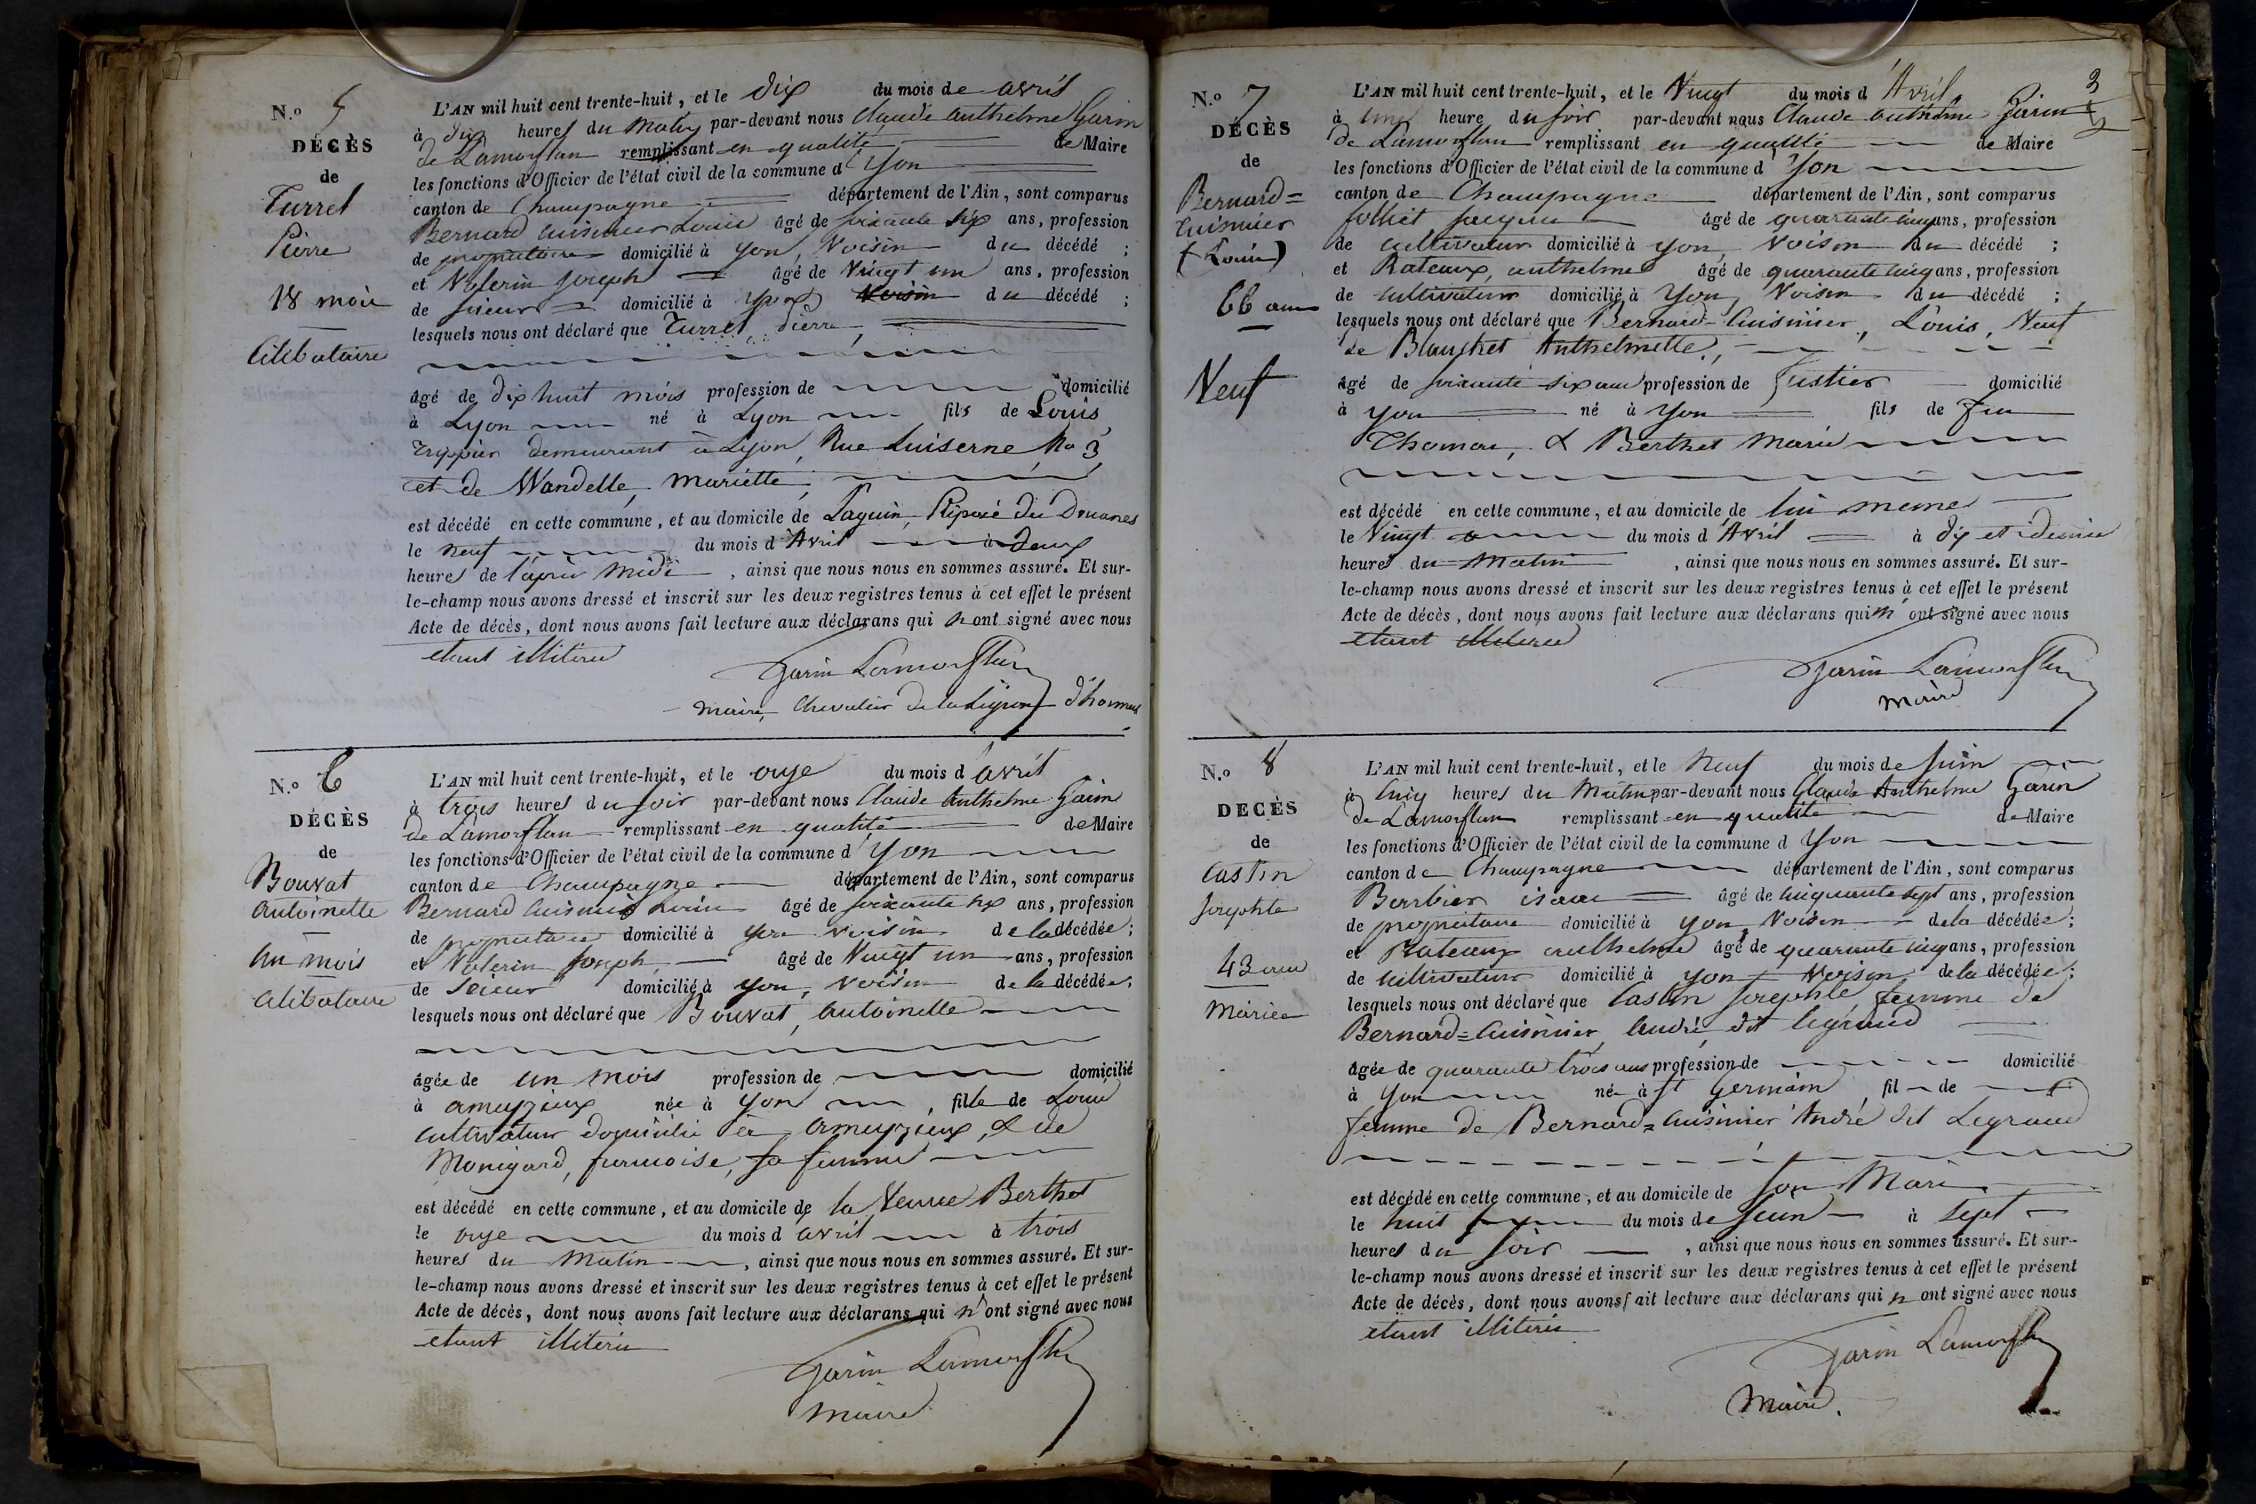 N.o 5
DÉCÈS
de
Turrel
Pierre
18 mois
Célibataire
L'AN mil huit cent trente-huit, et le dix du mois de avril
à dix heures du matin par-devant nous Claude anthelme Garin
de Lamorflan remplissant en qualité de Maire
les fonctions d'Officier de l'état civil de la commune d'Yon
canton de Champagne département de l'Ain, sont comparus
Bernard Cuisinier Louis âgé de soixante six ans, profession
de propriétaire domicilié à Yon, Voisin du décédé ;
et Valerin Joseph âgé de Vingt un ans, profession
de scieur domicilié à Yon Voisin du décédé ;
lesquels nous ont déclaré que Turrel Pierre,
âgé de dix huit mois profession de domicilié
à Lyon né à Lyon fils de Louis,
demeurant à Lyon, Rue Luiserne, No 3,
et de Wandelle, Mariette,
est décédé en cette commune, et au domicile de Laguin, Préposé du Douanes
le neuf du mois d'Avril à deux
heures de l'après midi, ainsi que nous nous en sommes assuré. Et sur-
le-champ nous avons dressé et inscrit sur les deux registres tenus à cet effet le présent
Acte de décès, dont nous avons fait lecture aux déclarans qui n'ont signé avec nous
étant illitérés
Garin Lamorflan
maire, Chevalier de la Légion d'honneur
N.o 6
DÉCÈS
de
Bouvat
Antoinette
un mois
Célibataire
L'AN mil huit cent trente-huit, et le onze du mois d'avril
à trois heures du soir par-devant nous Claude Anthelme Garin
de Lamorflan remplissant en qualité de Maire
les fonctions d'Officier de l'état civil de la commune d'Yon
canton de Champagne département de l'Ain, sont comparus
Bernard Cuisinier Louis âgé de soixante six ans, profession
de propriétaire domicilié à Yon voisin de la décédée ;
et Valerin Joseph, âgé de Vingt un ans, profession
de Scieur domicilié à Yon, voisin de la décédée ;
lesquels nous ont déclaré que Bouvat, Antoinette
âgée de un mois profession de domicilié
à ameyzieux née à Yon, fille de Louis
cultivateur domicilié à ameyzieux, & de
Monigard, francoise, sa femme
est décédé en cette commune, et au domicile de la Veuve Berthet
le onze du mois d'avril à trois
heures du Matin, ainsi que nous nous en sommes assuré. Et sur-
le-champ nous avons dressé et inscrit sur les deux registres tenus à cet effet le présent
Acte de décès, dont nous avons fait lecture aux déclarans qui n'ont signé avec nous
étant illitérés
Garin Lamorflan
Maire
3
N.o 7
DÉCÈS
de
Bernard=
Cuisinier
(Louis)
66 ans
Veuf
L'AN mil huit cent trente-huit, et le Vingt du mois d'Avril
à une heure du soir par-devant nous Claude anthelme Garin
de Lamorflan remplissant en qualité de Maire
les fonctions d'Officier de l'état civil de la commune d'Yon
canton de Champagne département de l'Ain, sont comparus
Jolliet Jacques âgé de quarante cinq ans, profession
de cultivateur domicilié à Yon, Voisin du décédé ;
et Rateaux, anthelme âgé de quarante cinq ans, profession
de cultivateur domicilié à Yon, Voisin du décédé ;
lesquels nous ont déclaré que Bernard-Cuisinier, Louis, Veuf
de Blanchet Anthelmette,
âgé de soixante-six ans profession de Fustier domicilié
à Yon né à Yon fils de feu
Thomas, & Berthet Marie
est décédé en cette commune, et au domicile de lui meme
le Vingt du mois d'Avril à dix et demie
heures du Matin, ainsi que nous nous en sommes assuré. Et sur-
le-champ nous avons dressé et inscrit sur les deux registres tenus à cet effet le présent
Acte de décès, dont nous avons fait lecture aux déclarans qui n'ont signé avec nous
étant illitérés
Garin Lamorflan
Maire
N.o 8
DECÈS
de
Castin
Josephte
43 ans
Mariée
L'AN mil huit cent trente-huit, et le Neuf du mois de Juin
à Cinq heures du Matin par-devant nous Claude Anthelme Garin
de Lamorflan remplissant en qualité de Maire
les fonctions d'Officier de l'état civil de la commune d Yon
canton de Champagne département de l'Ain, sont comparus
Barbier isaac âgé de cinquante sept ans, profession
de propriétaire domicilié à Yon, Voisin de la décédée ;
et Rateaux anthelme âgé de quarante cinq ans, profession
de cultivateur domicilié à Yon Voisin de la décédée ;
lesquels nous ont déclaré que Castin Josephte, femme de
Bernard=Cuisinier, André, dit legrand
âgée de quarante trois ans profession de domicilié
à Yon né à St Germain fil de
femme de Bernard=Cuisinier André dit Legrand
est décédé en cette commune, et au domicile de son Mari
le huit du mois de Juin à sept
heures du soir, ainsi que nous nous en sommes assuré. Et sur-
le-champ nous avons dressé et inscrit sur les deux registres tenus à cet effet le présent
Acte de décès, dont nous avons fait lecture aux déclarans qui n ont signé avec nous
étant illitérés
Garin Lamorflan
Maire.